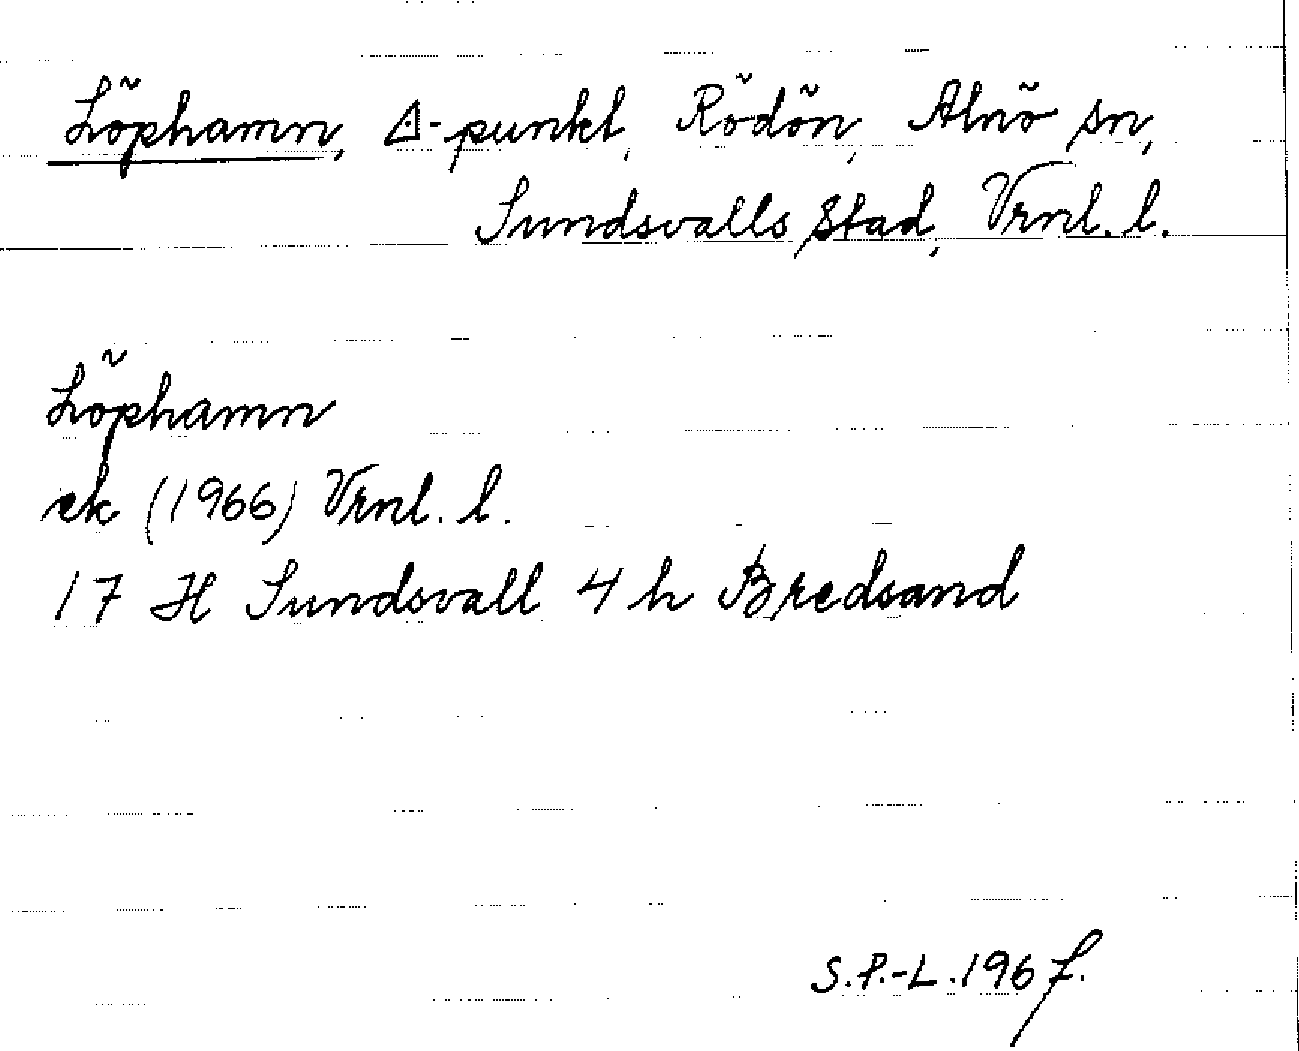 Löphamn, △-punkt, Rödön, Alnö sn,
Sundsvalls stad, Vrnl. l.
Löphamn
ek (1966) Vrnl. l.
17 H Sundsvall 4 h Bredsand
S.P.-L. 1967.